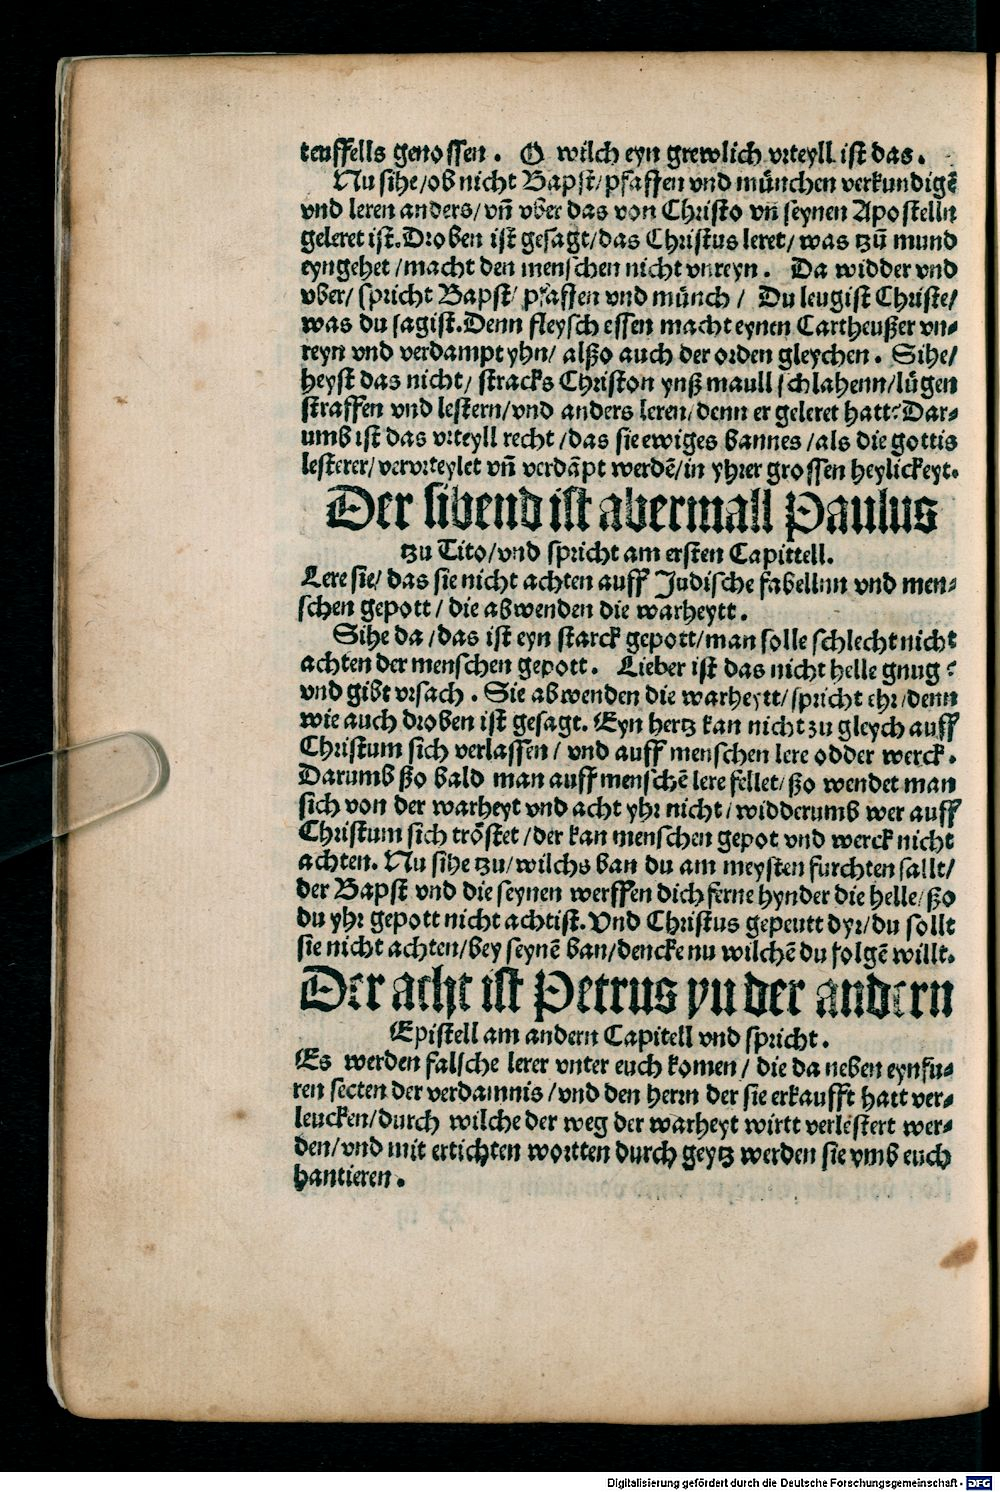 teuffells genossen. O wilch eyn grewlich vrteyll ist das.
Nu sihe/ob nicht Bapst/pfaffen vnd münchen verkundigē
vnd leren anders/vn̄ vber das von Christo vn̄ seynen Apostelln
geleret ist. Droben ist gesagt/das Christus leret/was tzů mund
eyngehet/macht den menschen nicht vnreyn. Da widder vnd
vber/spricht Bapst/pfaffen vnd münch/ Du leugist Christe/
was du sagist. Denn fleysch essen macht eynen Cartheußer vn⸗
reyn vnd verdampt yhn/ alßo auch der orden gleychen. Sihe/
heyst das nicht/ stracks Christon ynß maull schlahenn/lügen
straffen vnd lestern/vnd anders leren/denn er geleret hatt? Dar⸗
umb ist das vrteyll recht/das sie ewiges bannes/als die gottis
lesterer/vervrteylet vn̄ verdāpt werdē/in yhrer grossen heylickeyt.
Der sibend ist abermall Paulus
tzu Tito/vnd spricht am ersten Capittell.
Lere sie/ das sie nicht achten auff Judische fabellnn vnd men⸗
schen gepott/ die abwenden die warheytt.
Sihe da/das ist eyn starck gepott/man solle schlecht nicht
achten der menschen gepott. Lieber ist das nicht helle gnug?
vnd gibt vrsach. Sie abwenden die warheytt/spricht ehr/denn
wie auch droben ist gesagt. Eyn hertz kan nicht zu gleych auff
Christum sich verlassen/ vnd auff menschen lere odder werck.
Darumb ßo bald man auff menschē lere fellet/ßo wendet man
sich von der warheyt vnd acht yhr nicht/widderumb wer auff
Christum sich tröstet/der kan menschen gepot vnd werck nicht
achten. Nu sihe tzu/wilchs ban du am meysten furchten sallt/
der Bapst vnd die seynen werffen dich ferne hynder die helle/ßo
du yhr gepott nicht achtist. Vnd Christus gepeutt dyr/du sollt
sie nicht achten/bey seynē ban/dencke nu wilchē du folgē willt.
Der acht ist Petrus yn der andern
Epistell am andern Capitell vnd spricht.
Es werden falsche lerer vnter euch komen/ die da neben eynfu⸗
ren secten der verdamnis/vnd den herrn der sie erkaufft hatt ver⸗
leucken/durch wilche der weg der warheyt wirtt verlestert wer⸗
den/vnd mit ertichten wortten durch geytz werden sie vmb euch
hantieren.
Digitalisierung gefördert durch die Deutsche Forschungsgemeinschaft - DFG